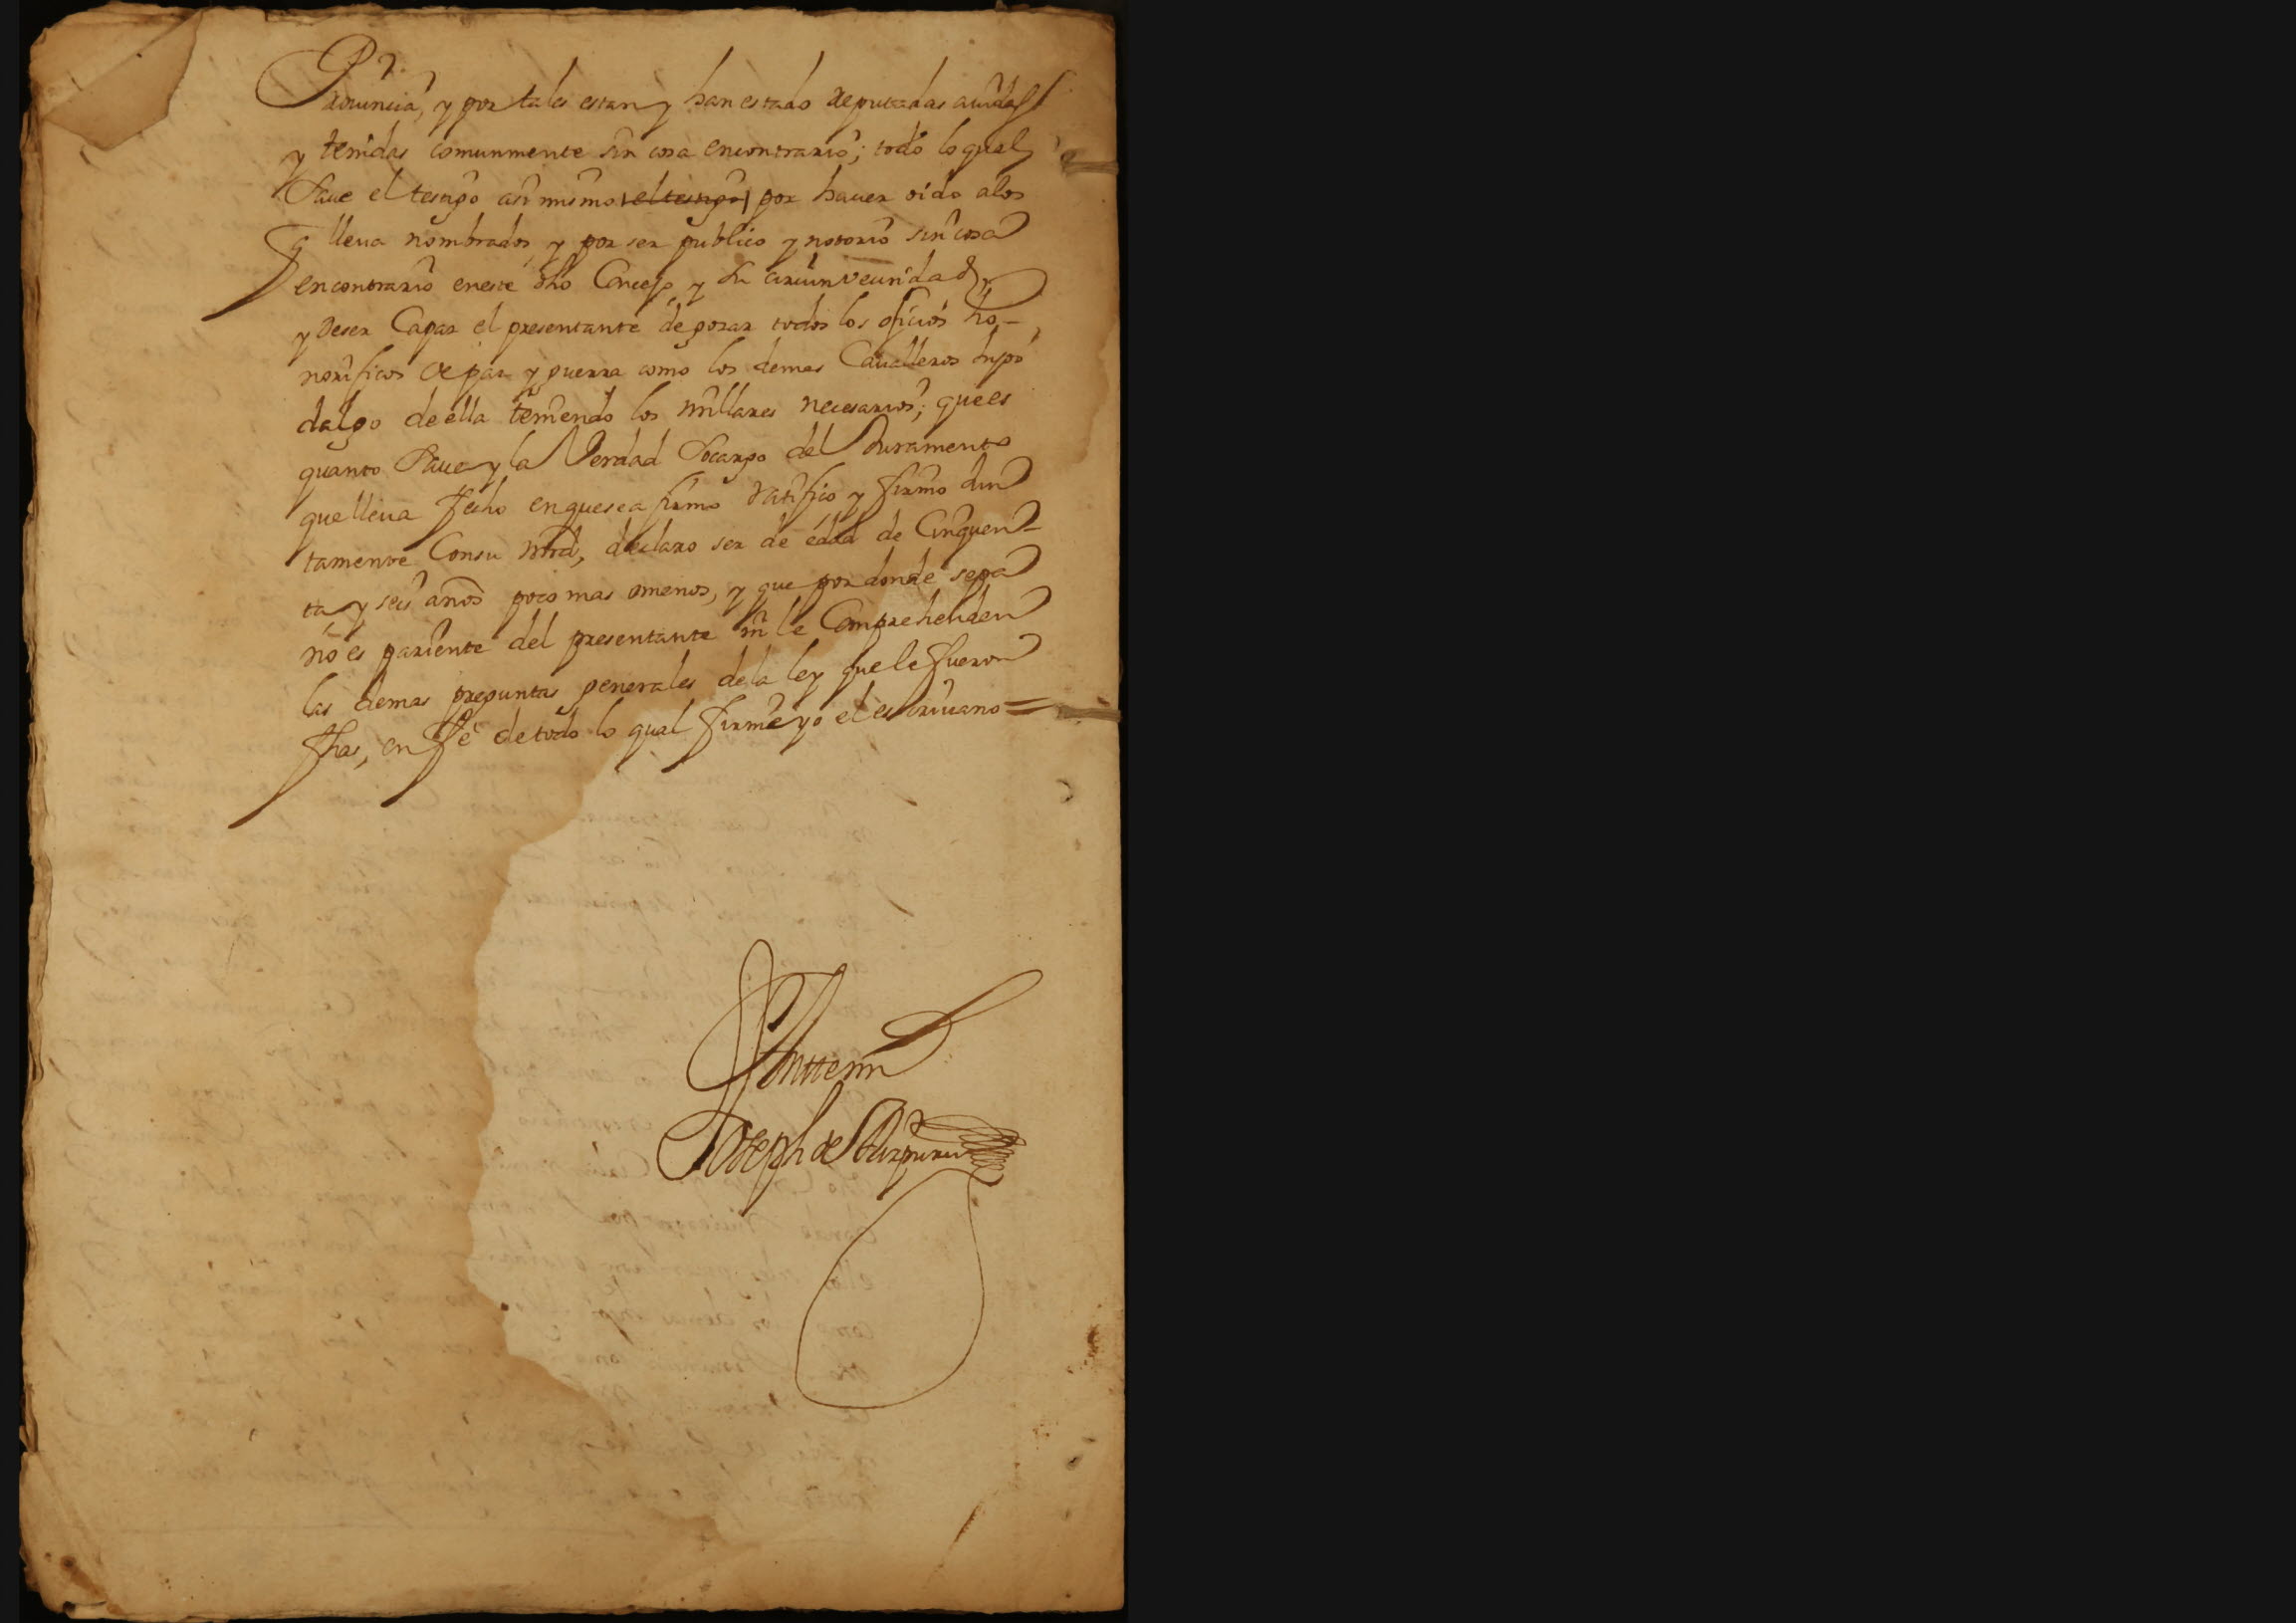 Prouincia, y por tales estan y han estado deputadas auidas
y tenidas comunmente sin cosa encontrario; todo lo qual
saue el testigo asi mismo el testigo por hauer oido alos
q lleua nombrados, y por ser publico y notorio sin cosa
encontrario eneste dho Concejo y su circunvecindad,
y deser Capaz el presentante de gozar todos los oficios ho-
norificos de paz y guerra como los demas Caualleros hijos
dalgo de ella teniendo los millares necesarios; que es
quanto saue y la Verdad socargo del Juramento
que lleua fecho en que se afirmo ratifico y firmo Jun
tamente Con su mrd, declaro ser de edad de Cinquen-
ta y seis años poco mas omenos, y que por donde sepa
no es pariente del presentante ni le Comprehenden
las demas preguntas generales dela ley que le fueron
fhas, en fe de todo lo qual firme yo el escriuano =
Antte mi
Joseph de Aizpuru